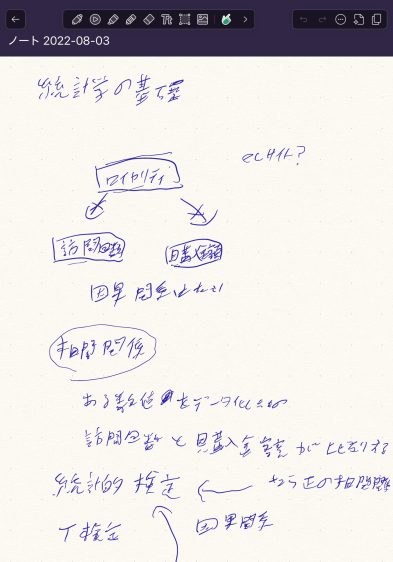 ノート 2022-08-03
統計学の基礎
ECサイト?
ロイヤリティ
訪問回数
購入金額
因果関係はない
相関関係
ある数値をデータ化したもの
訪問回数と購入金額が比例する
統計的検定
なら正の相関関係
T検定
因果関係